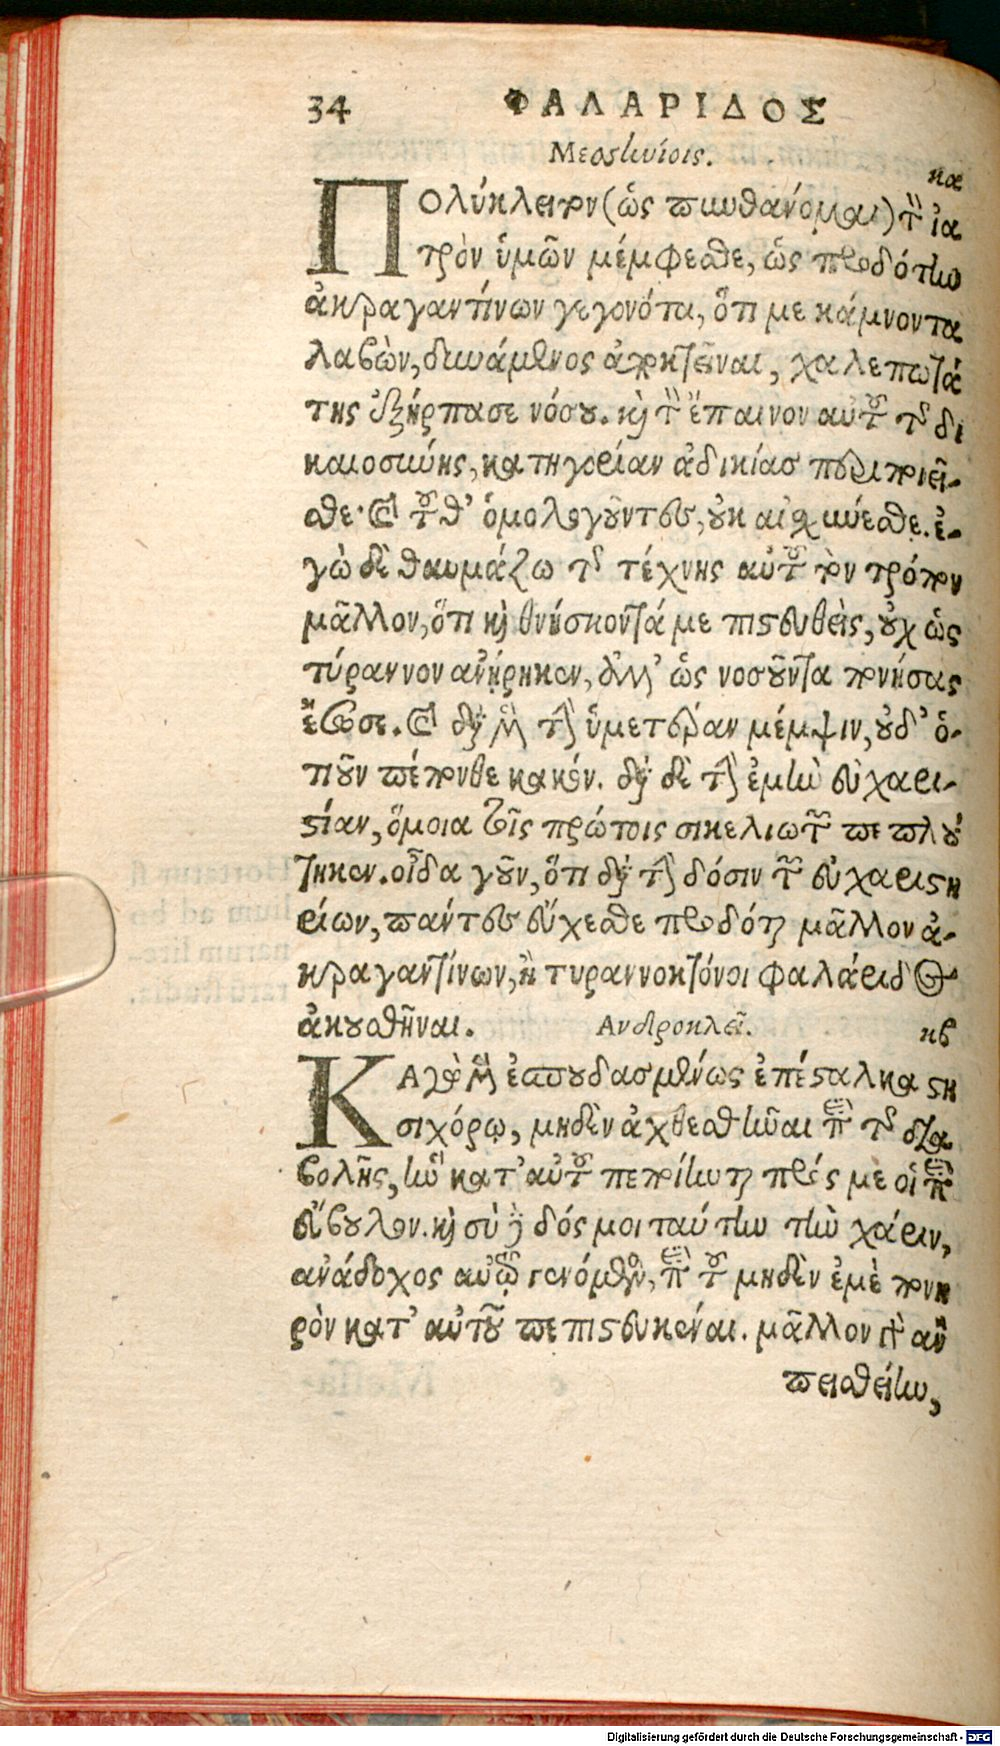 34 ΦΑΛΑΡΙΔΟΣ
Μεσσηνίοις. κα
Πολύκλειτον (ὡς πυνθάνομαι) τὸν ἰα
τρὸν ὑμῶν μέμφεσθε, ὡς προδότην
ἀκραγαντίνων γεγονότα, ὅτι με κάμνοντα
λαβὼν, δυνάμενος ἀποκτεῖναι, χαλεπωτά
της ἐξήρπασε νόσου. καὶ τὸν ἔπαινον αὐτοῦ τῆς δι
καιοσύνης, κατηγορίαν ἀδικίας ποιεῖ-
σθε· καὶ τοῦθ' ὁμολογοῦντες, οὐκ αἰσχύνεσθε. ἐ-
γὼ δὲ θαυμάζω τῆς τέχνης αὐτοῦ τὸν τρόπον
μᾶλλον, ὅτι καὶ θνήσκοντά με πιστευθεὶς, οὐχ ὡς
τύραννον ἀνῄρηκεν, ἀλλ' ὡς νοσοῦντα πονήσας
ἔσωσε. καὶ διὰ μὲν τὴν ὑμετέραν μέμψιν, οὐδ' ὁ-
τιοῦν πέπονθε κακόν. διὰ δὲ τὴν ἐμὴν εὐχαρι-
στίαν, ὅμοια τοῖς πρώτοις σικελιωτῶν πεπλού
τηκεν. οἶδα γοῦν, ὅτι διὰ τὴν δόσιν τῶν εὐχαριστη
ρίων, πάντες εὔχεσθε προδόται μᾶλλον ἀ-
κραγαντίνων, ἢ τυραννοκτόνοι φαλάριδος
ἀκουσθῆναι. Ανδροκλεῖ. κβ
Κἀγὼ μὲν ἐσπουδασμένως ἐπέσταλκα στη
σιχόρῳ, μηδὲν ἀχθεσθῆναι περὶ τῆς δια
βολῆς, ἣν κατ' αὐτοῦ πεποίηνται πρός με οἱ περὶ
εὔβουλον. καὶ σὺ δὲ δός μοι ταύτην τὴν χάριν,
ἀνάδοχος αὐτῷ γενόμενος, περὶ τοῦ μηδὲν ἐμὲ πονη
ρὸν κατ' αὐτοῦ πεπιστευκέναι. μᾶλλον γὰρ ἂν
πεισθείην,